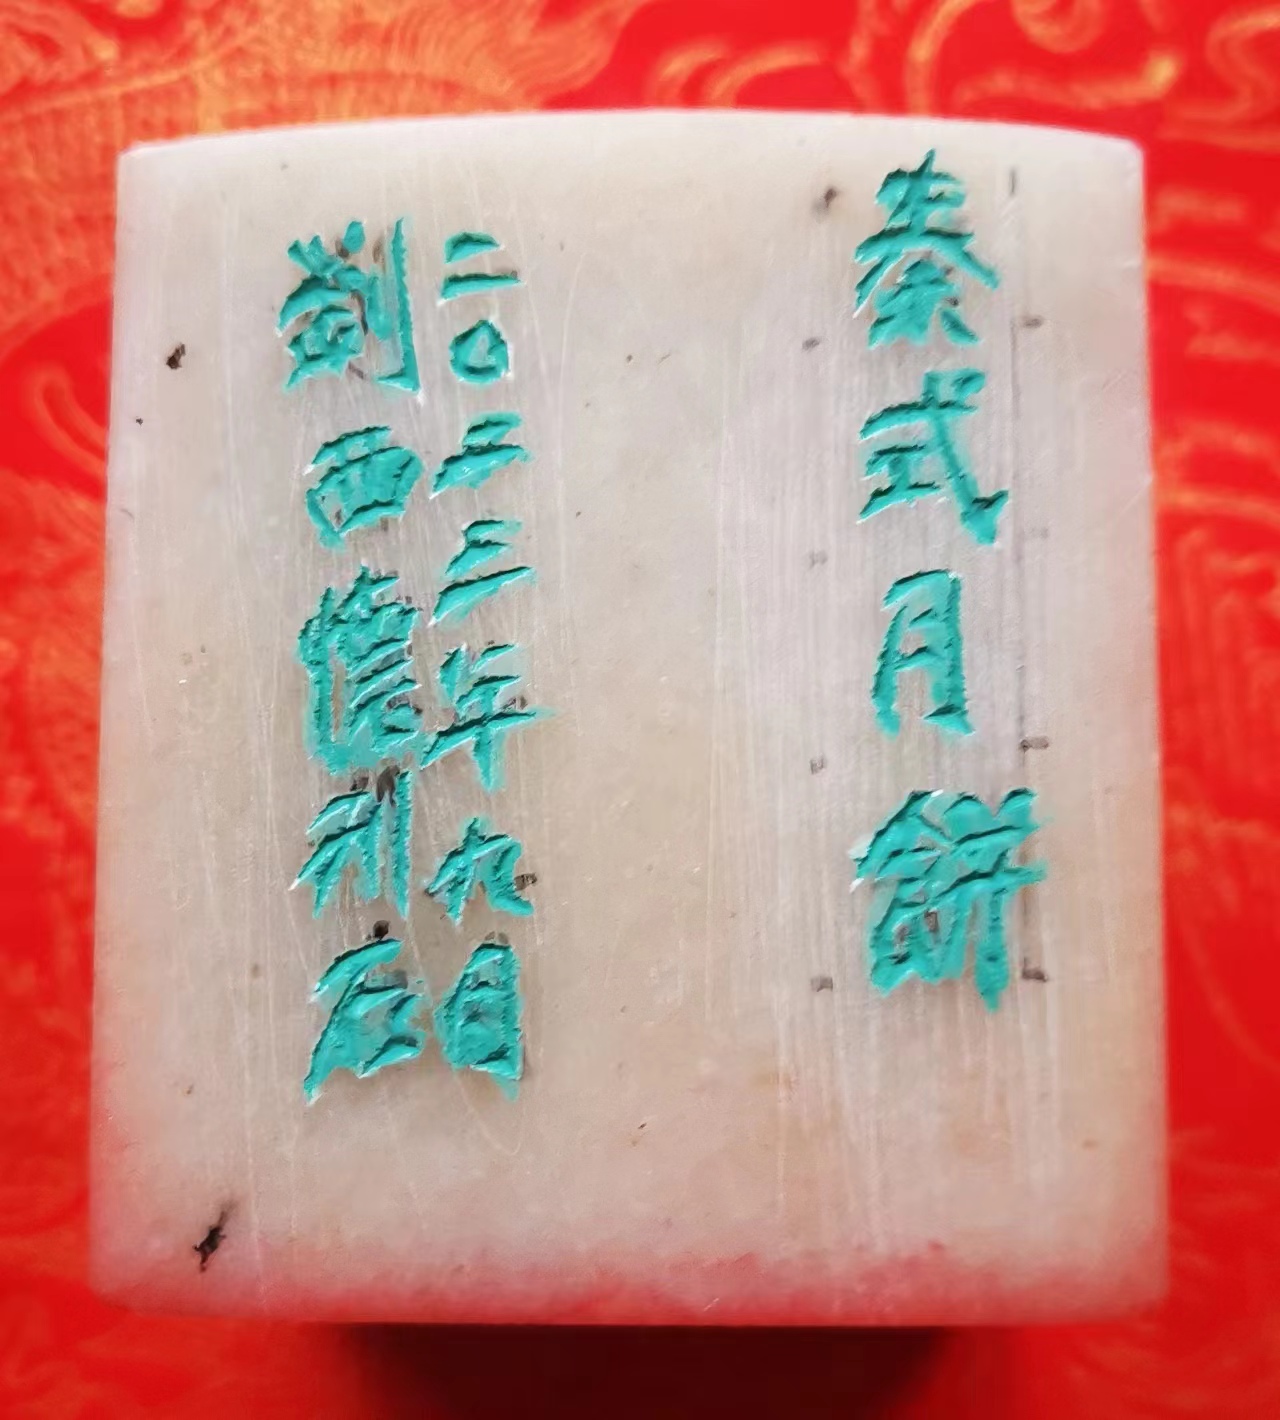 秦式月餅
二〇二三年九月
劉西刊石